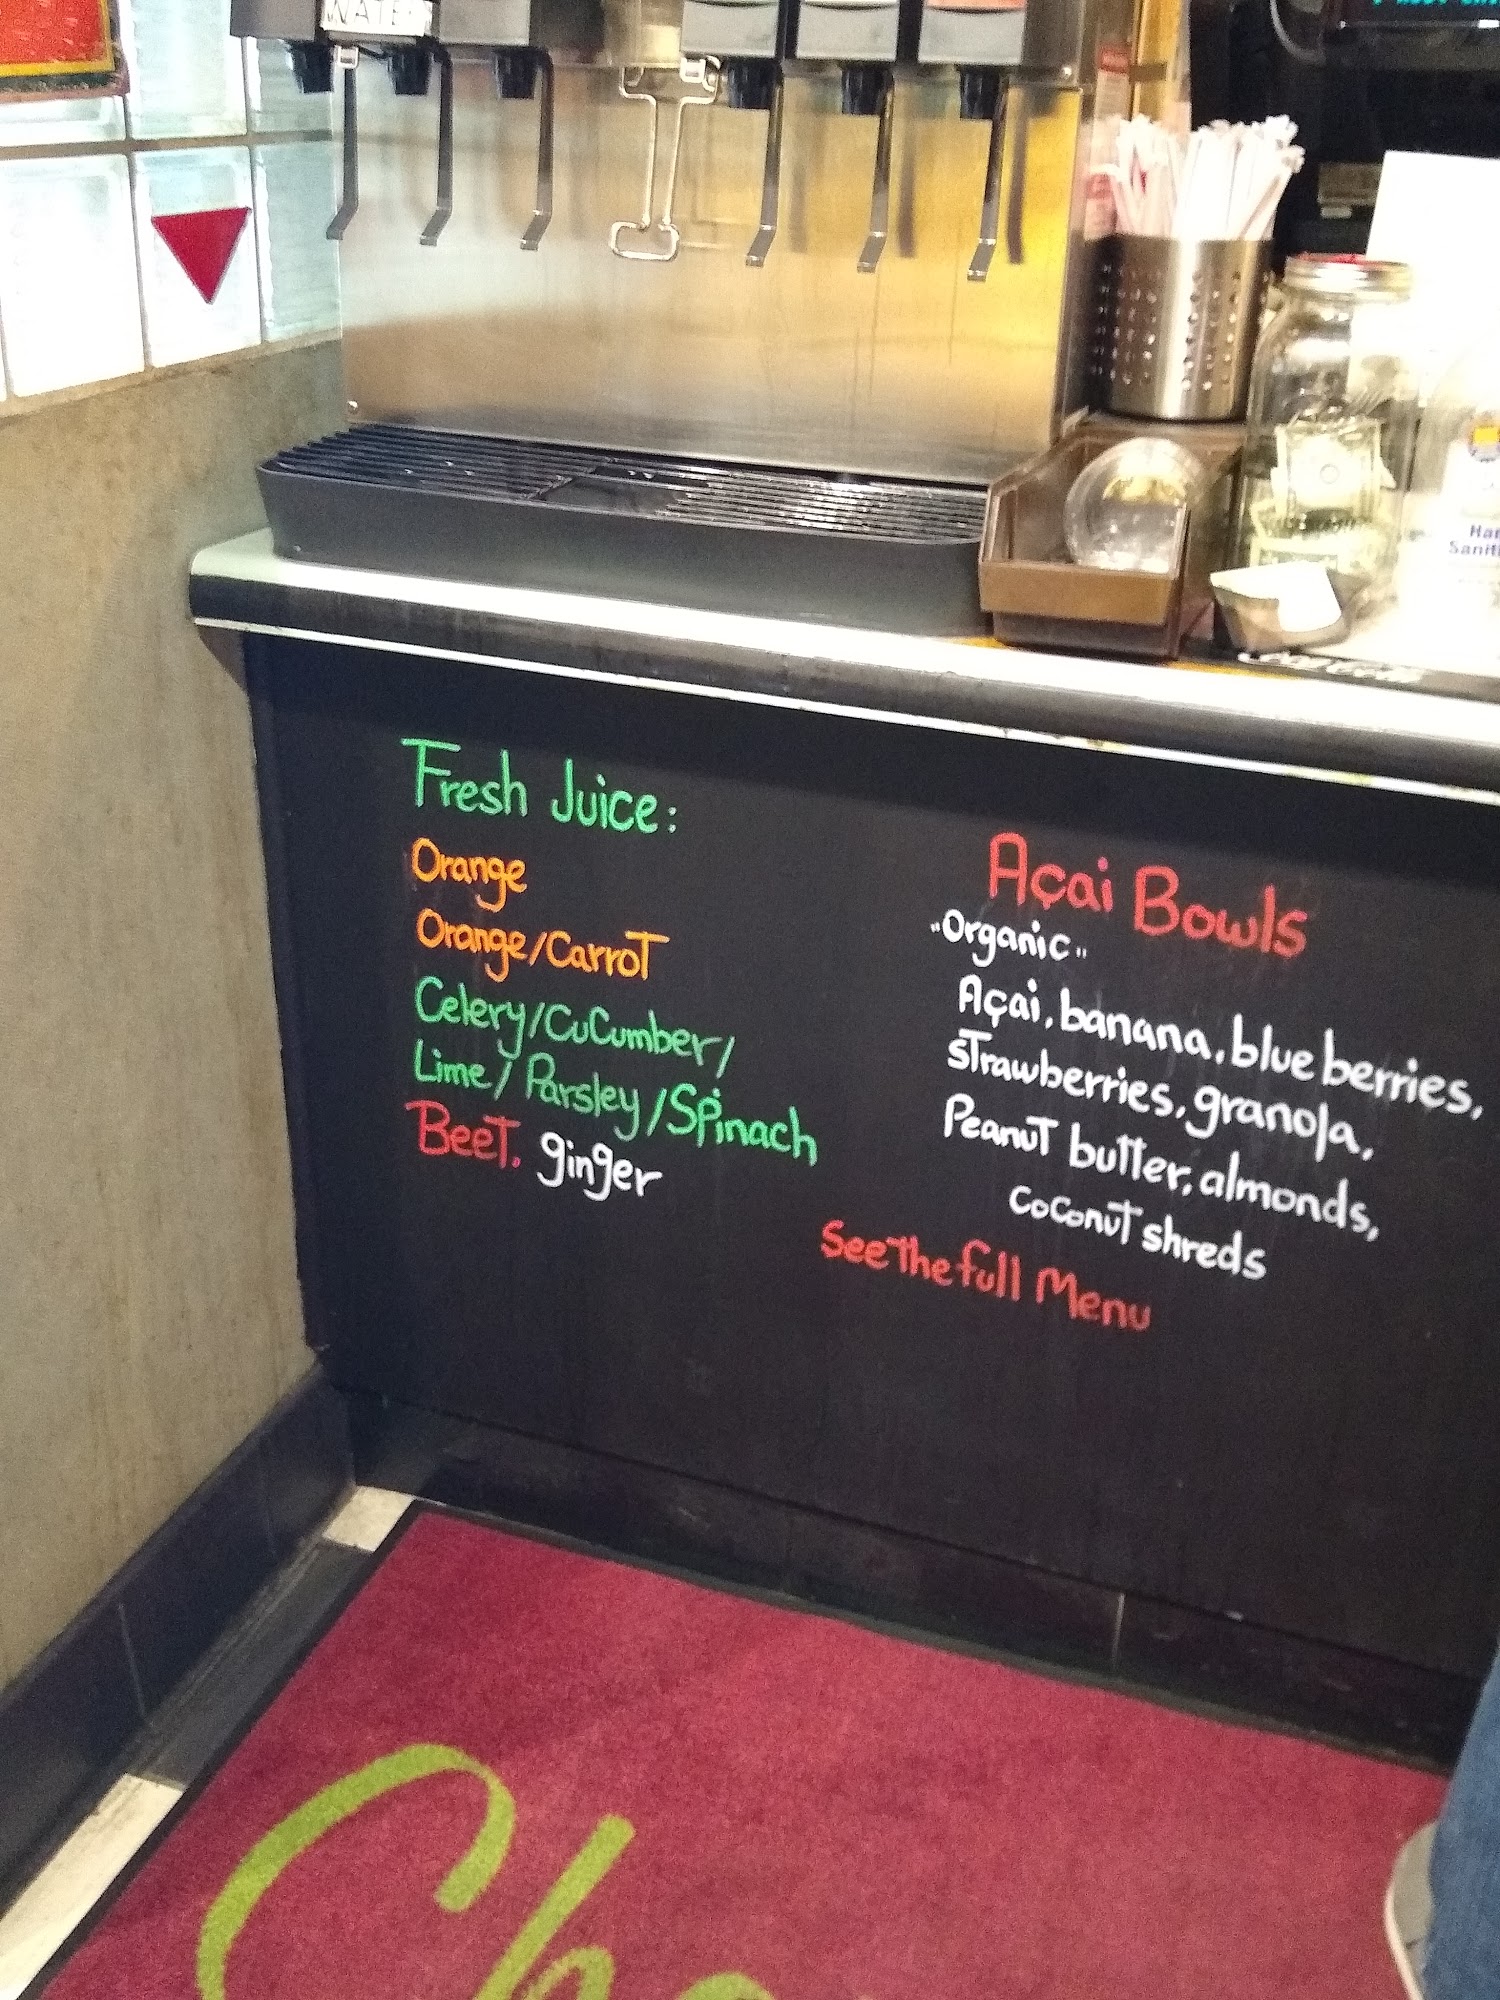 WATER
Han
Saniti
Fresh Juice:
Orange
Orange/Carrot
Celery/CuCumber/
Lime/Parsley/Spinach
Beet. ginger
Açai Bowls
"Organic"
Açai, banana, blue berries,
Strawberries, granola,
Peanut butter, almonds,
CoConut shreds
See the full Menu
Che